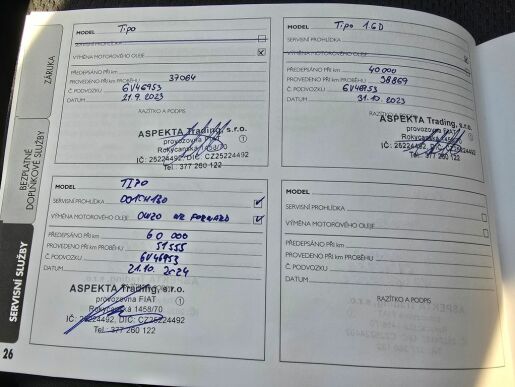 ZÁRUKA
BEZPLATNÉ
DOPLŇKOVÉ SLUŽBY
SERVISNÍ SLUŽBY
26
MODEL Tipo
SERVISNÍ PROHLÍDKA
VÝMĚNA MOTOROVÉHO OLEJE
PŘEDEPSÁNO PŘI km
PROVEDENO PŘI km PROBĚHU 37064
Č. PODVOZKU 6V46953
DATUM 21.9.2023
RAZÍTKO A PODPIS
ASPEKTA Trading, s.r.o.
provozovna FIAT
Rokycanská 1458/70
IČ: 25224492, DIČ: CZ25224492
Tel. 377 260 122
MODEL Tipo 1.6D
SERVISNÍ PROHLÍDKA
VÝMĚNA MOTOROVÉHO OLEJE
PŘEDEPSÁNO PŘI km 40000
PROVEDENO PŘI km PROBĚHU 38869
Č. PODVOZKU 6V46953
DATUM 31.10.2023
RAZÍTKO A PODPIS
ASPEKTA Trading, s.r.o.
provozovna FIAT
Rokycanská 1458/70
IČ: 25224492, DIČ: CZ25224492
Tel. 377 260 122
MODEL TIPO
SERVISNÍ PROHLÍDKA
VÝMĚNA MOTOROVÉHO OLEJE 0W20
PŘEDEPSÁNO PŘI km 60 000
PROVEDENO PŘI km PROBĚHU 51555
Č. PODVOZKU 6V46953
DATUM 21.10.2024
ASPEKTA Trading, s.r.o.
provozovna FIAT
Rokycanská 1458/70
IČ: 25224492, DIČ: CZ25224492
Tel. 377 260 122
MODEL
SERVISNÍ PROHLÍDKA
VÝMĚNA MOTOROVÉHO OLEJE
PŘEDEPSÁNO PŘI km
PROVEDENO PŘI km PROBĚHU
Č. PODVOZKU
DATUM
RAZÍTKO A PODPIS